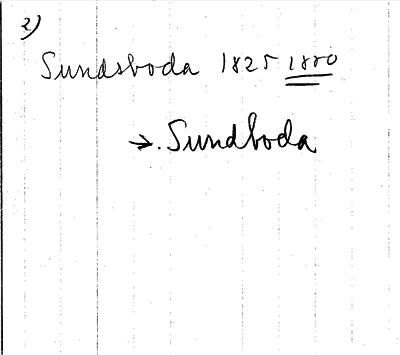 2)
Sundsboda 1825 1880
→. Sundboda